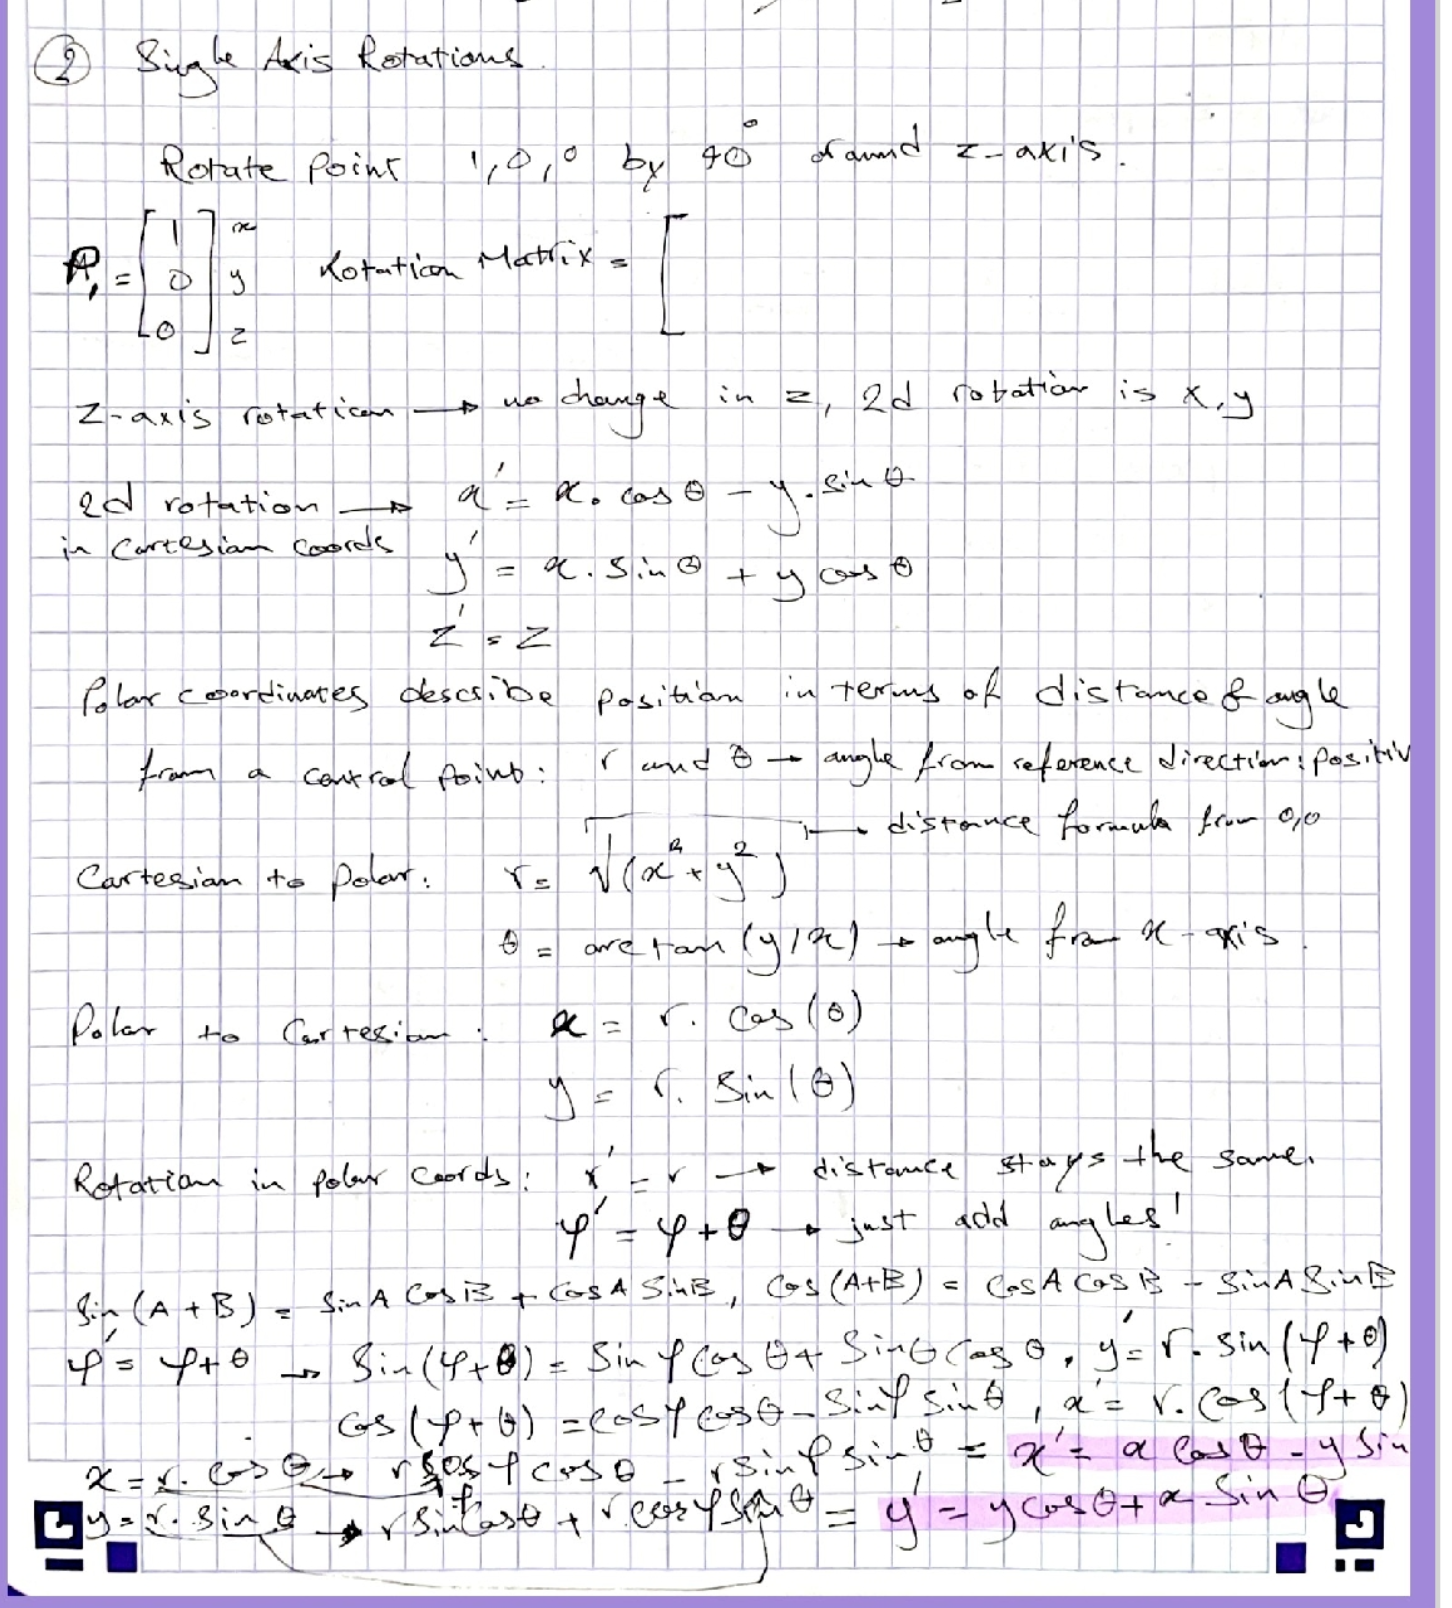 ② Single Axis Rotations.
Rotate Point 1,0,0 by 90° around z-axis.
P₁ = [1 0 0] x y z Rotation Matrix = [
Z-axis rotation → no change in z, 2d rotation is x,y
2d rotation → x' = x. cos θ - y. sin θ
in Cartesian coords y' = x. sin θ + y cos θ
z' = z
Polar coordinates describe position in terms of distance & angle
from a central point: r and θ → angle from reference direction: positiv
→ distance formula from 0,0
Cartesian to Polar: r = √(x² + y²)
θ = arctan (y/x) → angle from x-axis.
Polar to Cartesian: x = r. cos(θ)
y = r. sin(θ)
Rotation in polar coords: r' = r → distance stays the same.
φ' = φ + θ → just add angles!
Sin (A + B) = sin A cos B + cos A sin B, cos (A+B) = cos A cos B - sin A sin B
φ' = φ + θ → Sin (φ + θ) = Sin φ cos θ + Sin θ cos θ, y' = r. sin (φ + θ)
cos (φ + θ) = cos φ cos θ - sin φ sin θ, x' = r. cos (φ + θ)
x = r. cos θ → r cos φ cos θ - r sin φ sin θ = x' = x cos θ - y sin
y = r. sin θ → r sin φ cos θ + r. cos φ sin θ = y' = y cos θ + x sin θ